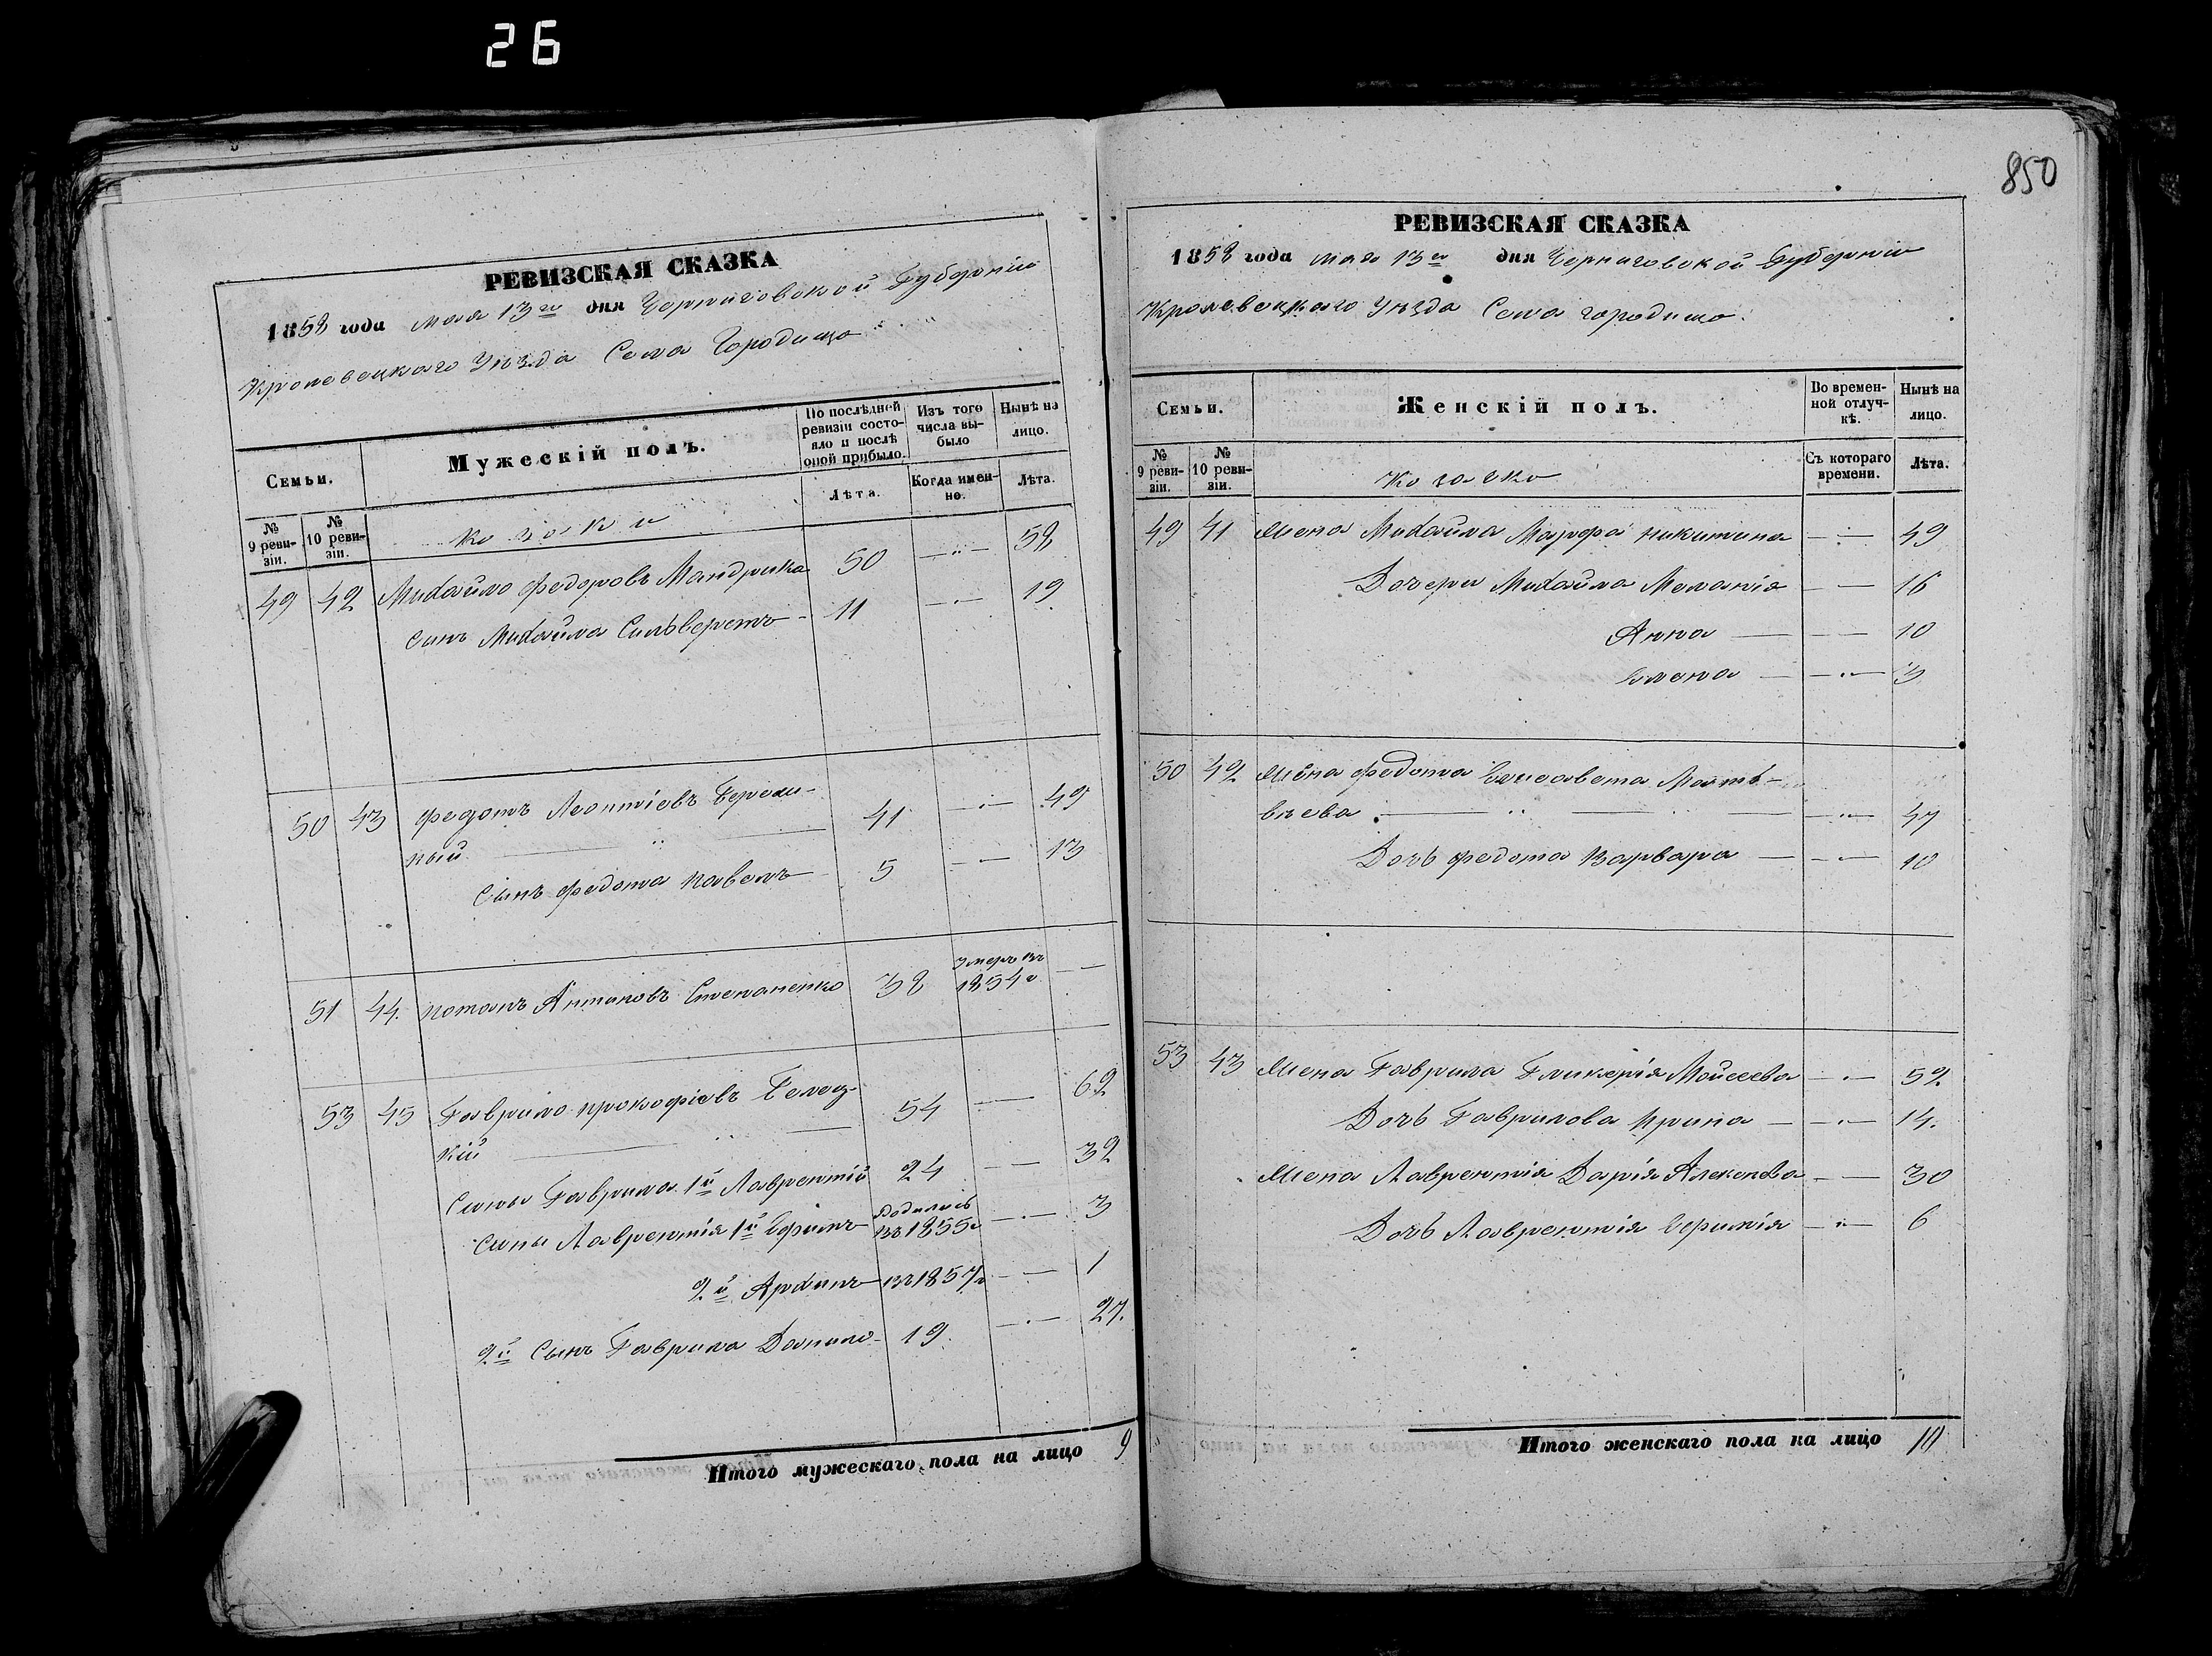 26
850
РЕВИЗСКАЯ СКАЗКА
1858 года мая 13го дня Черниговской Губерніи
Кролевецкаго Уѣзда Села Городища
Семьи.
Мужескій полъ.
По послѣдней ревизіи состояло и послѣ оной прибыло.
Изъ того числа выбыло
Нынѣ на лицо.
№ 9 ревизіи.
№ 10 ревизіи.
козаки
Лѣта.
Когда именно.
Лѣта.
49 42 Михайло Федоровъ Мандрика 50 — 58
сынъ Михайла Сильверстъ 11 — 19
50 43 Федотъ Леонтіевъ Береж-
ный 41 — 49
Сынъ Федота Павелъ 5 — 13
51 44. Потапъ Антиповъ Степаненко 38 Умеръ въ 1854 г —
53 45 Гаврило Прокофіевъ Белец-
кій 54 — 62
Сыны Гаврила 1й Лаврентій 24 — 32
Сыны Лаврентія 1й Ефимъ Родились въ 1855 г — 3
2й Архипъ въ 1857 г — 1
2й Сынъ Гаврила Данило 19 — 27.
Итого мужескаго пола на лицо 9
РЕВИЗСКАЯ СКАЗКА
1858 года мая 13го дня Черниговской Губерніи
Кролевецкаго Уѣзда Села городища.
Семьи.
Женскій полъ.
Во временной отлучкѣ.
Нынѣ на лицо.
№ 9 ревизіи.
№ 10 ревизіи.
Козачки
Съ котораго времени.
Лѣта.
49 41 Жена Михайла Марфа Никитина — 49
Дочери Михайла Меланія — 16
Анна — 10
Елена — 3
50 42 Жена Федота Елисавета Матѣ-
вѣева — 47
Дочь Федота Варвара — 10
53 43 Жена Гаврила Гликерія Мойсеева — 52
Дочь Гаврилова Ирина — 14.
Жена Лаврентія Дарія Алексѣева — 30
Дочь Лаврентія Ефимія — 6
Итого женскаго пола на лицо 10